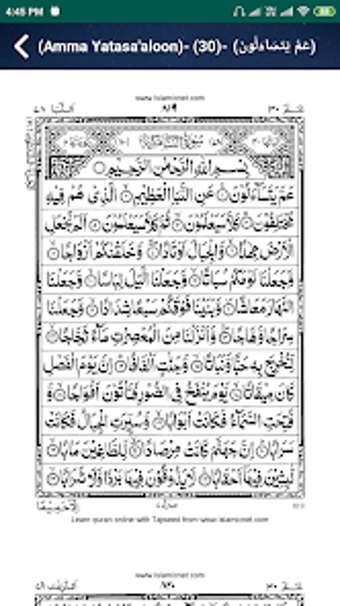 4:45 PM
(Amma Yatasa'aloon)- (30)- (عَمَّ يَتَسَاءَلُونَ)
www.islamicnet.com
عم ٣٠
٨١٩
بِسْمِ اللهِ الرَّحْمٰنِ الرَّحِيْمِ
عَمَّ يَتَسَآءَلُوْنَ عَنِ النَّبَاِ الْعَظِيْمِ الَّذِىْ هُمْ فِيْهِ
مُخْتَلِفُوْنَ كَلَّا سَيَعْلَمُوْنَ ثُمَّ كَلَّا سَيَعْلَمُوْنَ اَلَمْ نَجْعَلِ
الْاَرْضَ مِهٰدًا وَّالْجِبَالَ اَوْتَادًا وَّخَلَقْنٰكُمْ اَزْوَاجًا
وَّجَعَلْنَا نَوْمَكُمْ سُبَاتًا وَّجَعَلْنَا الَّيْلَ لِبَاسًا وَّجَعَلْنَا
النَّهَارَ مَعَاشًا وَّبَنَيْنَا فَوْقَكُمْ سَبْعًا شِدَادًا وَّجَعَلْنَا
سِرَاجًا وَّهَّاجًا وَّاَنْزَلْنَا مِنَ الْمُعْصِرٰتِ مَآءً ثَجَّاجًا
لِّنُخْرِجَ بِهٖ حَبًّا وَّنَبَاتًا وَّجَنّٰتٍ اَلْفَافًا اِنَّ يَوْمَ الْفَصْلِ
كَانَ مِيْقَاتًا يَّوْمَ يُنْفَخُ فِى الصُّوْرِ فَتَاْتُوْنَ اَفْوَاجًا وَّ
فُتِحَتِ السَّمَآءُ فَكَانَتْ اَبْوَابًا وَّسُيِّرَتِ الْجِبَالُ فَكَانَتْ
سَرَابًا اِنَّ جَهَنَّمَ كَانَتْ مِرْصَادًا لِّلطَّاغِيْنَ مَاٰبًا
لّٰبِثِيْنَ فِيْهَآ اَحْقَابًا لَا يَذُوْقُوْنَ فِيْهَا بَرْدًا وَّلَا شَرَابًا
Learn quran online with Tajweed from www.islamicnet.com
www.islamicnet.com
٨٢٠